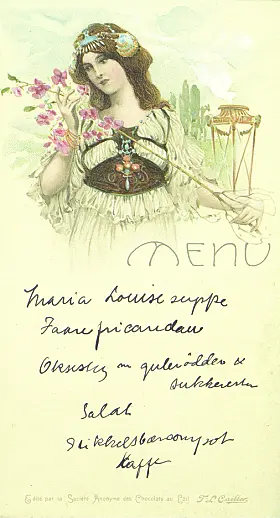 MENU
Maria Louise suppe
Faare fricandau
Oksesteg m gulerödder &
sukkererter
Salat
Stikkelsbærcompot
Kaffe
Edité par la Société Anonyme des Chocolats au Lait F.L. Cailler